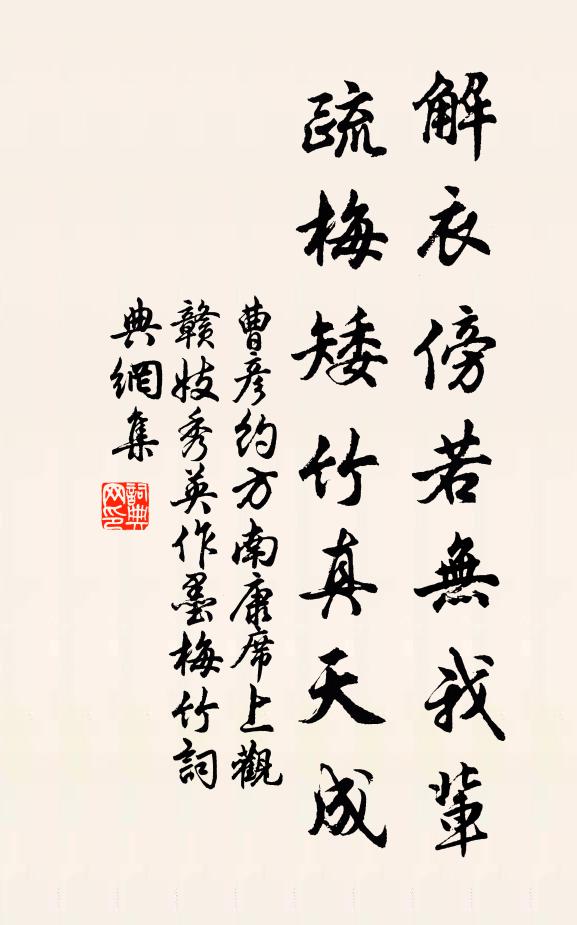 解衣傍若無我輩
疏梅矮竹真天成
曹彦約方南康席上觀
贛妓秀英作墨梅竹詞
典網集
詞典
网印